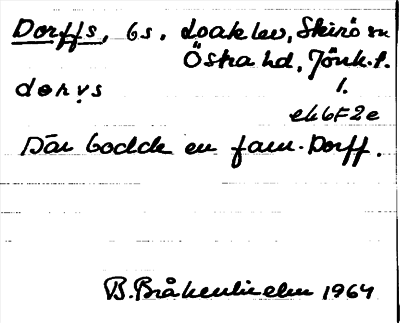 Dorffs, bs, Loaklev, Skirö sn
Östra hd, Jönk. l.
dɵrvs 1.
ek6F2e
Där bodde en fam. Dorff.
B. Bråkenhielm 1964